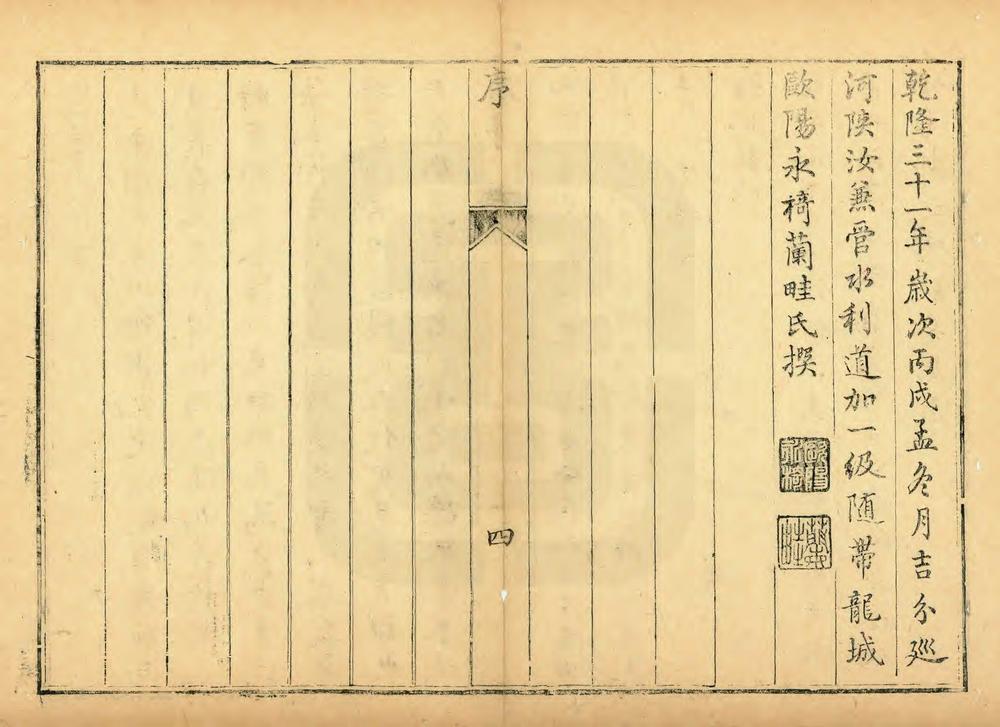 乾隆三十一年歲次丙戌孟冬月吉分巡
河陝汝兼管水利道加一級随帶龍城
歐陽永裿蘭畦氏撰
歐陽永裿
蘭畦
序
四